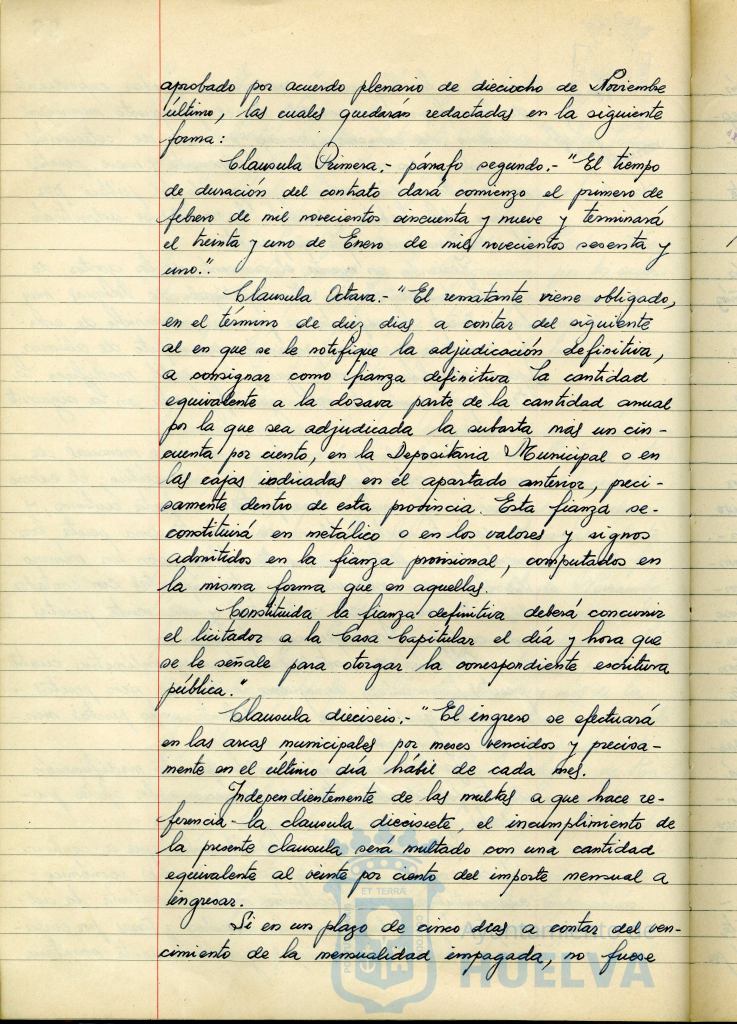 aprobado por acuerdo plenario de dieciocho de Noviembre
último, las cuales quedarán redactadas en la siguiente
forma:
Clausula Primera.- párrafo segundo.- "El tiempo
de duración del contrato dará comienzo el primero de
febrero de mil novecientos cincuenta y nueve y terminará
el treinta y uno de Enero de mil novecientos sesenta y
uno.".
Clausula Octava.- "El rematante viene obligado,
en el término de diez dias a contar del siguiente
al en que se le notifique la adjudicación definitiva,
a consignar como fianza definitiva la cantidad
equivalente a la dozava parte de la cantidad anual
por la que sea adjudicada la subasta mas un cin-
cuenta por ciento, en la Depositaria Municipal o en
las cajas indicadas en el apartado anterior, preci-
samente dentro de esta provincia. Esta fianza se-
constituirá en metálico o en los valores y signos
admitidos en la fianza provisional, computados en
la misma forma que en aquellas.
Constituida la fianza definitiva deberá concurrir
el licitador a la Casa Capitular el día y hora que
se le señale para otorgar la correspondiente escritura
pública."
Clausula dieciseis.- "El ingreso se efectuará
en las arcas municipales por meses vencidos y precisa-
mente en el último día hábil de cada mes.
Independientemente de las multas a que hace re-
ferencia la clausula diecisiete, el incumplimiento de
la presente clausula será multado con una cantidad
equivalente al veinte por ciento del importe mensual a
ingresar.
Si en un plazo de cinco dias a contar del ven-
cimiento de la mensualidad impagada, no fuese
ET TERRA
Ayuntamiento de
HUELVA